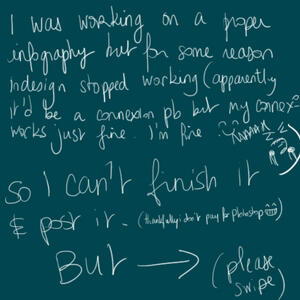 I was working on a proper
infography but for some reason
Indesign stopped working (apparently
it'd be a connexion pb but my connex°
works just fine. I'm fine.
so I can't finish it
& post it. (thankfully i don't pay for Photoshop
But → (please
swipe)